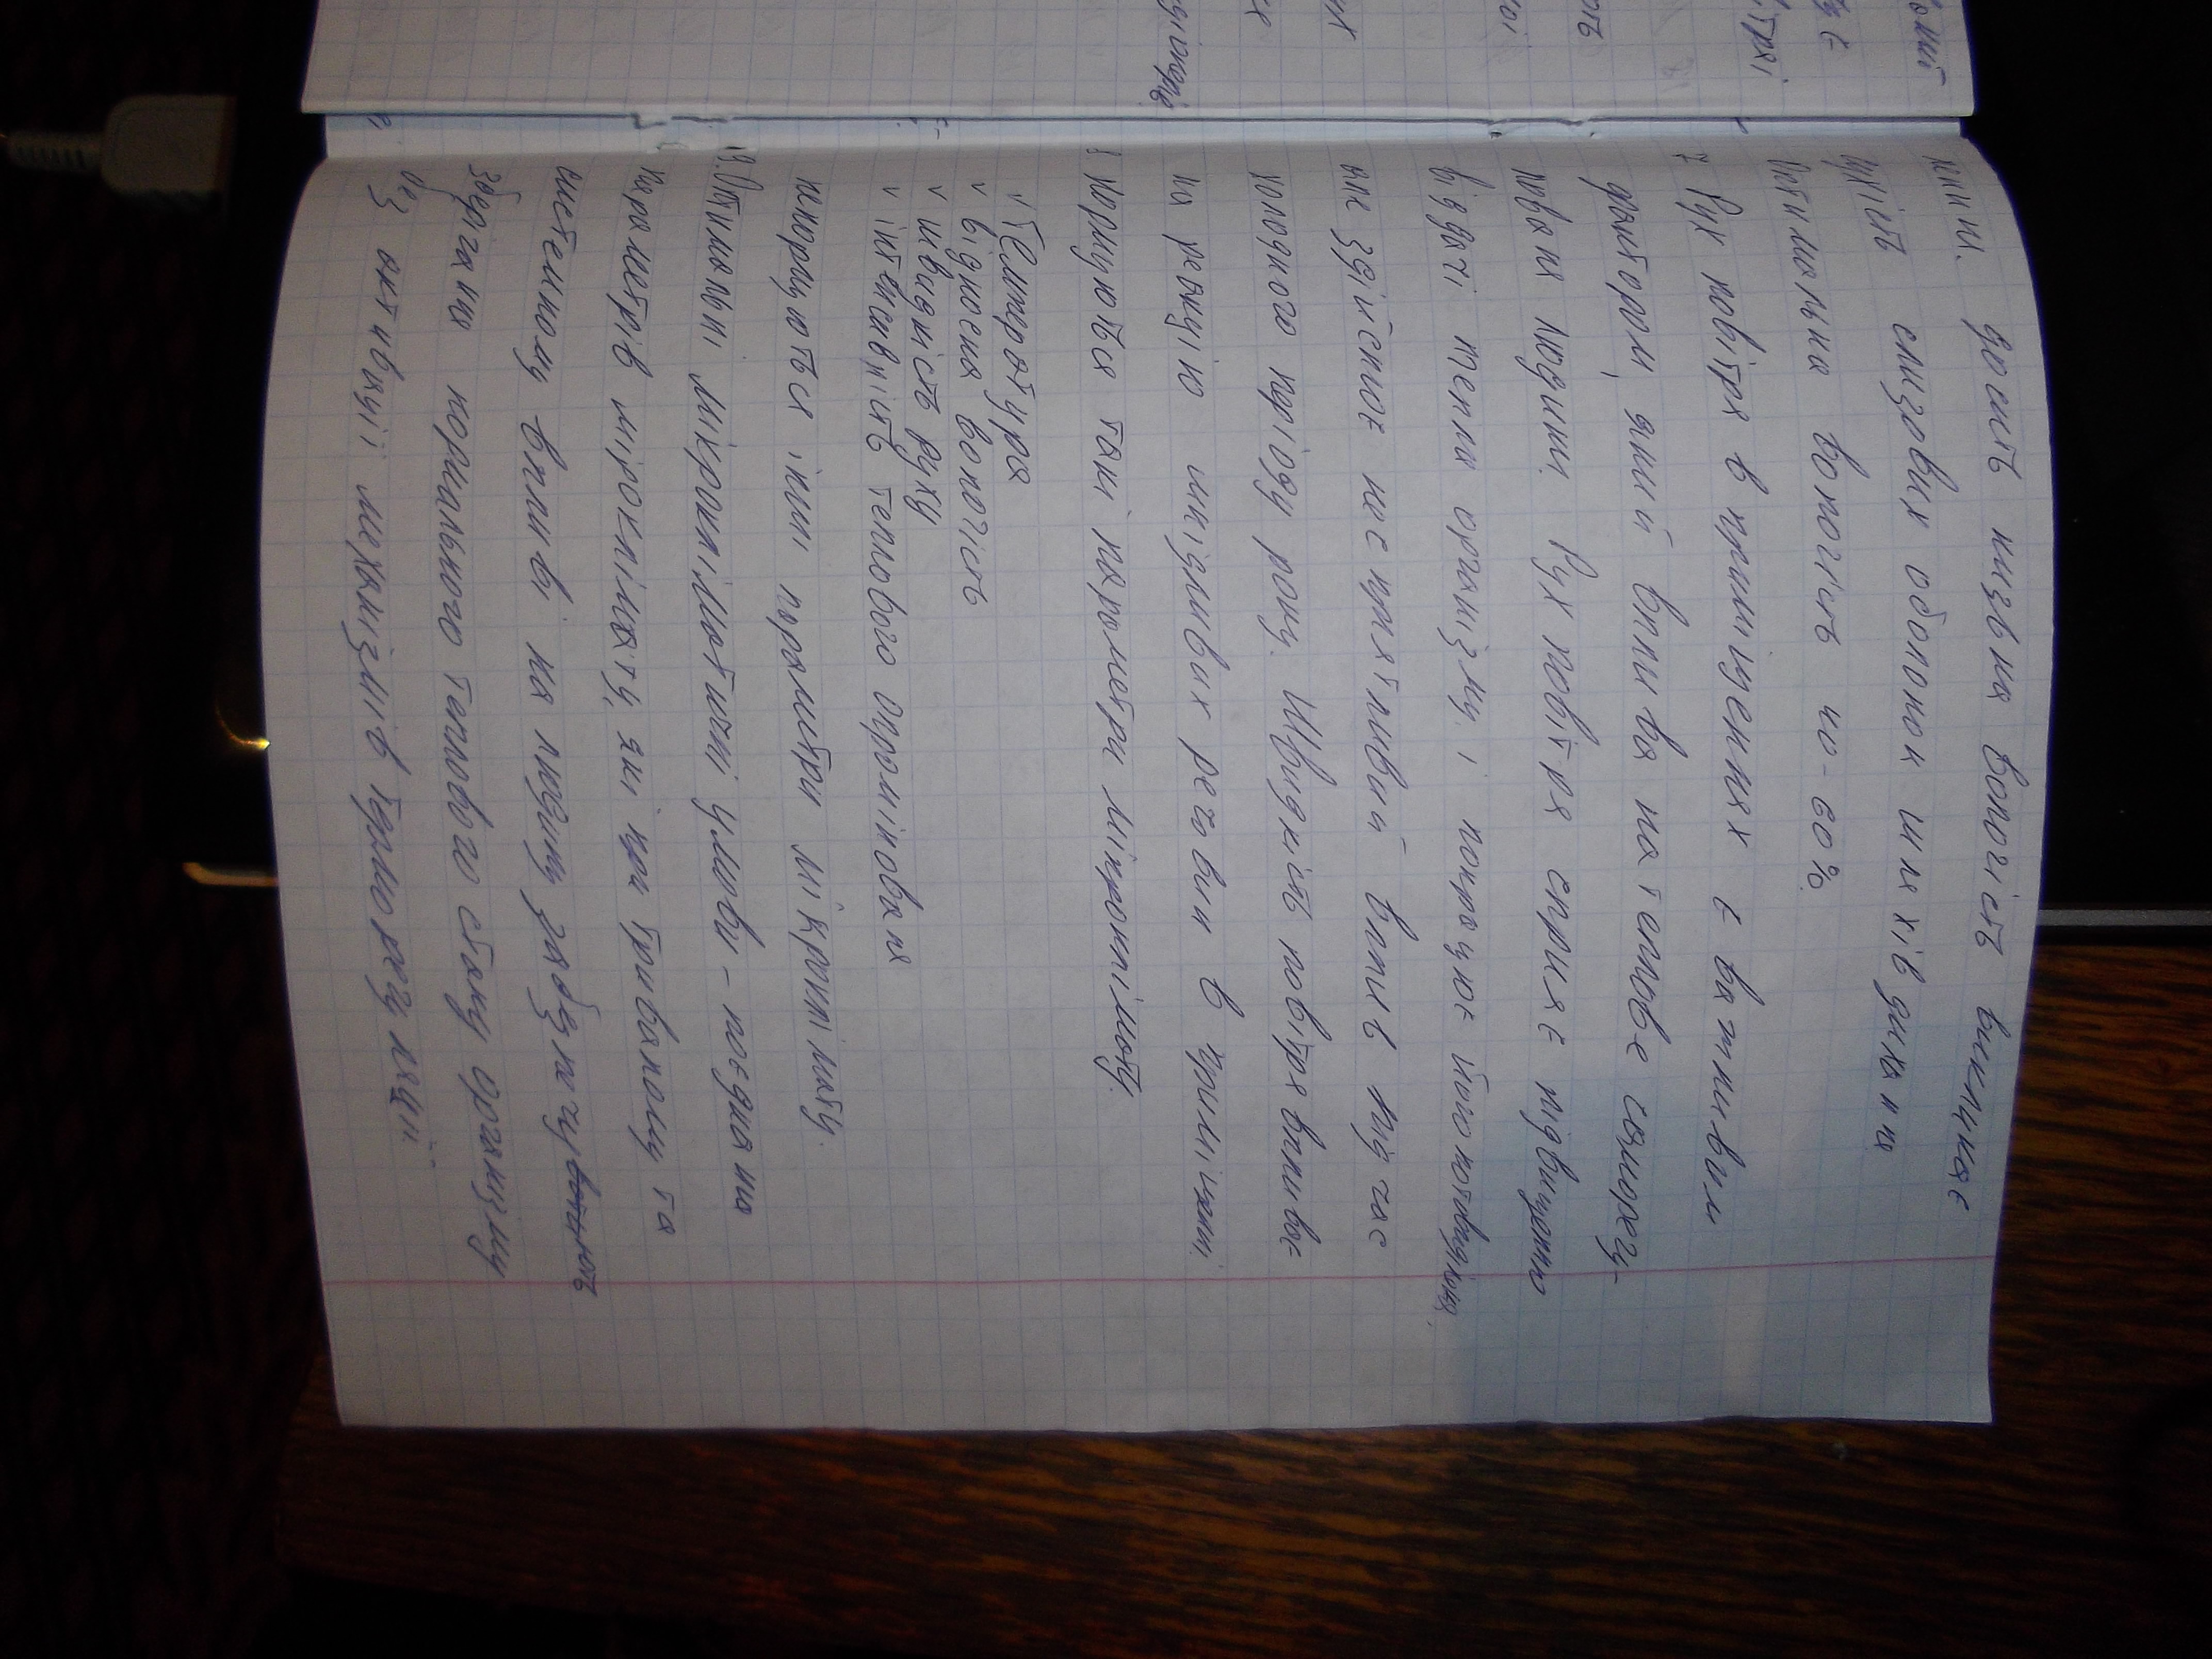 ником. Досить низька вологість викликає
сухість слизових оболонок шляхів дихання
Оптимальна вологість 40-60%.
7 Рух повітря в приміщеннях є важливим
фактором, який вплива на теплове саморегу-
лованя людини. Рух повітря сприяє підвищеню
віддачі тепла організму і покращує його
але здійснює несприятливий вплив під час
холодного періоду року. Швидкість повітря впливає
на реакцію шкідливих речовин в приміщені.
8 Нормуються такі параметри мікроклімату.
v Температура
v відносна вологість
v швидкість руху
v інтенсивність теплового опромінованя
нормуються інші параметри мікроклімату.
9. Оптимальні мікрокліматичні умови – поєднання
параметрів мікроклімату, які при тривалому та
системному вплив на людину забезпечують
зберігання нормального теплового стану організму
без активації механізмів терморегуляції.